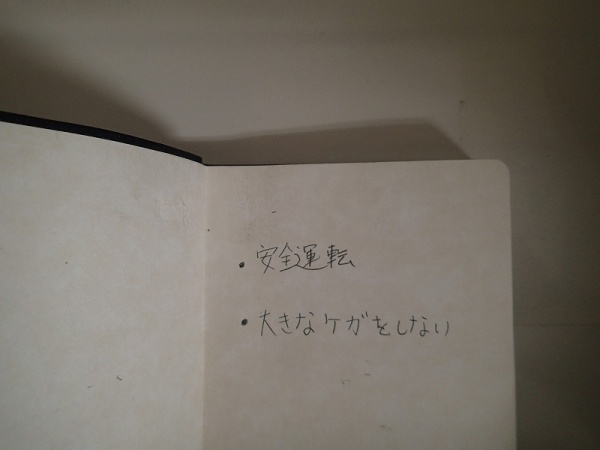 ・安全運転
・大きなケガをしない